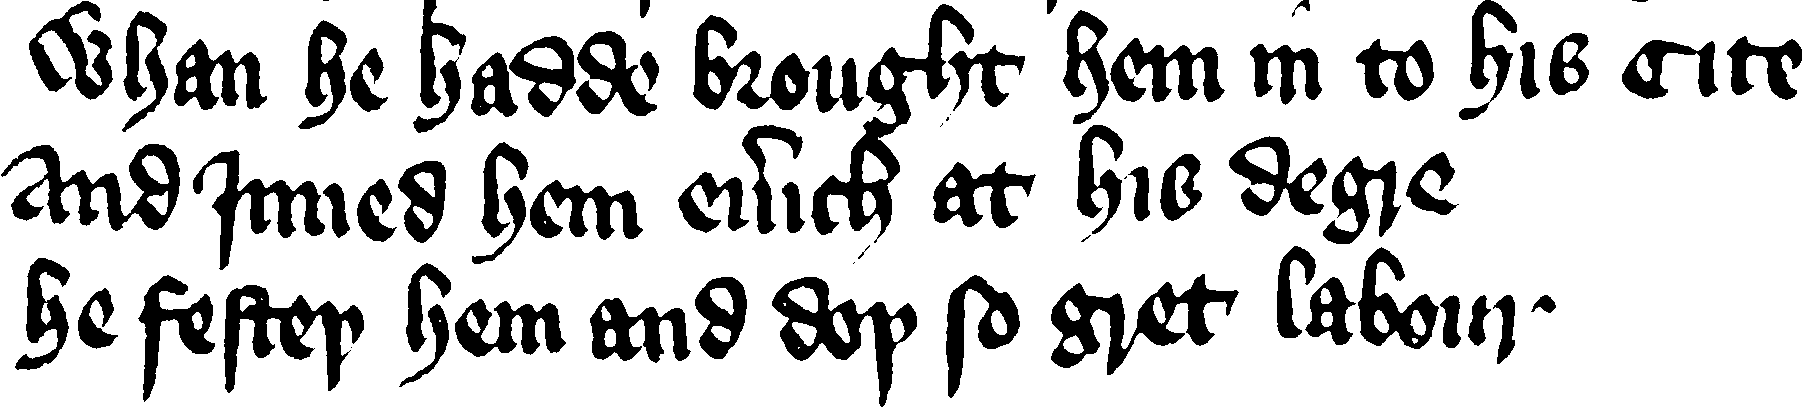 Whan he hadde brought hem in to his Cite
And Inned hem eu̾ich at his degre
he festeþ hem and doþ so gret labour